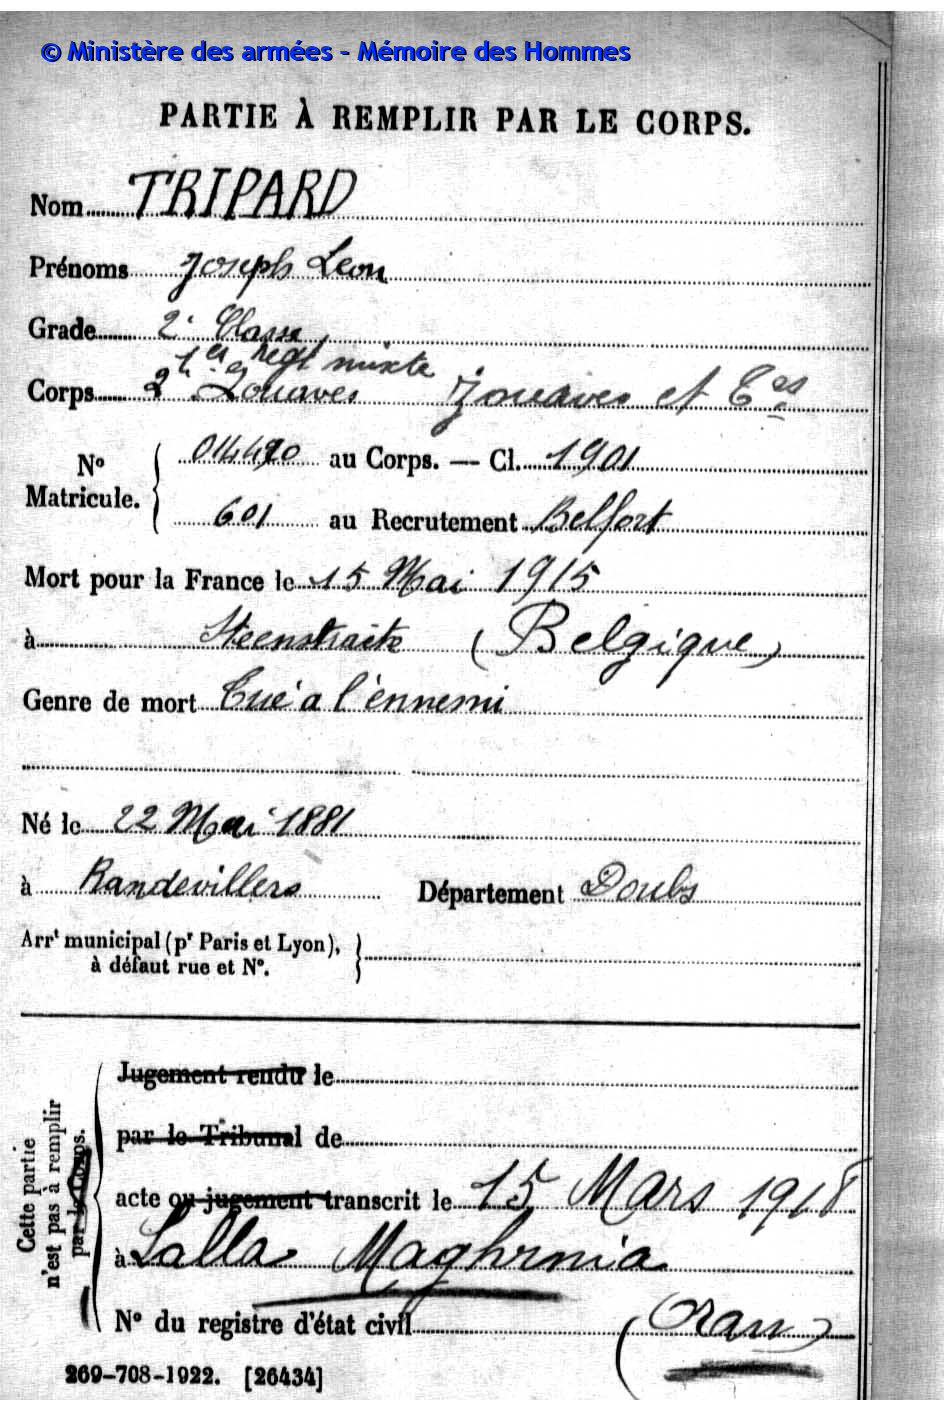 © Ministère des armées - Mémoire des Hommes
PARTIE À REMPLIR PAR LE CORPS.
Nom TRIPARD
Prénoms Joseph Leon
Grade 2e Classe
1er Regt mixte
Corps 2e Zouaves Zouaves et Ces
No Matricule. 014490 au Corps. — Cl. 1901
601 au Recrutement Belfort
Mort pour la France le 15 Mai 1915
à Steenstraate (Belgique)
Genre de mort Tué a l'ennemi
Né le 22 Mai 1881
à Randevillers Département Doubs
Arrt municipal (pr Paris et Lyon),
à défaut rue et No.
Cette partie
n'est pas à remplir
par le Corps.
Jugement rendu le
par le Tribunal de
acte ou jugement transcrit le 15 Mars 1918
à Lalla Maghrnia
No du registre d'état civil (Oran)
269-708-1922. [26434]